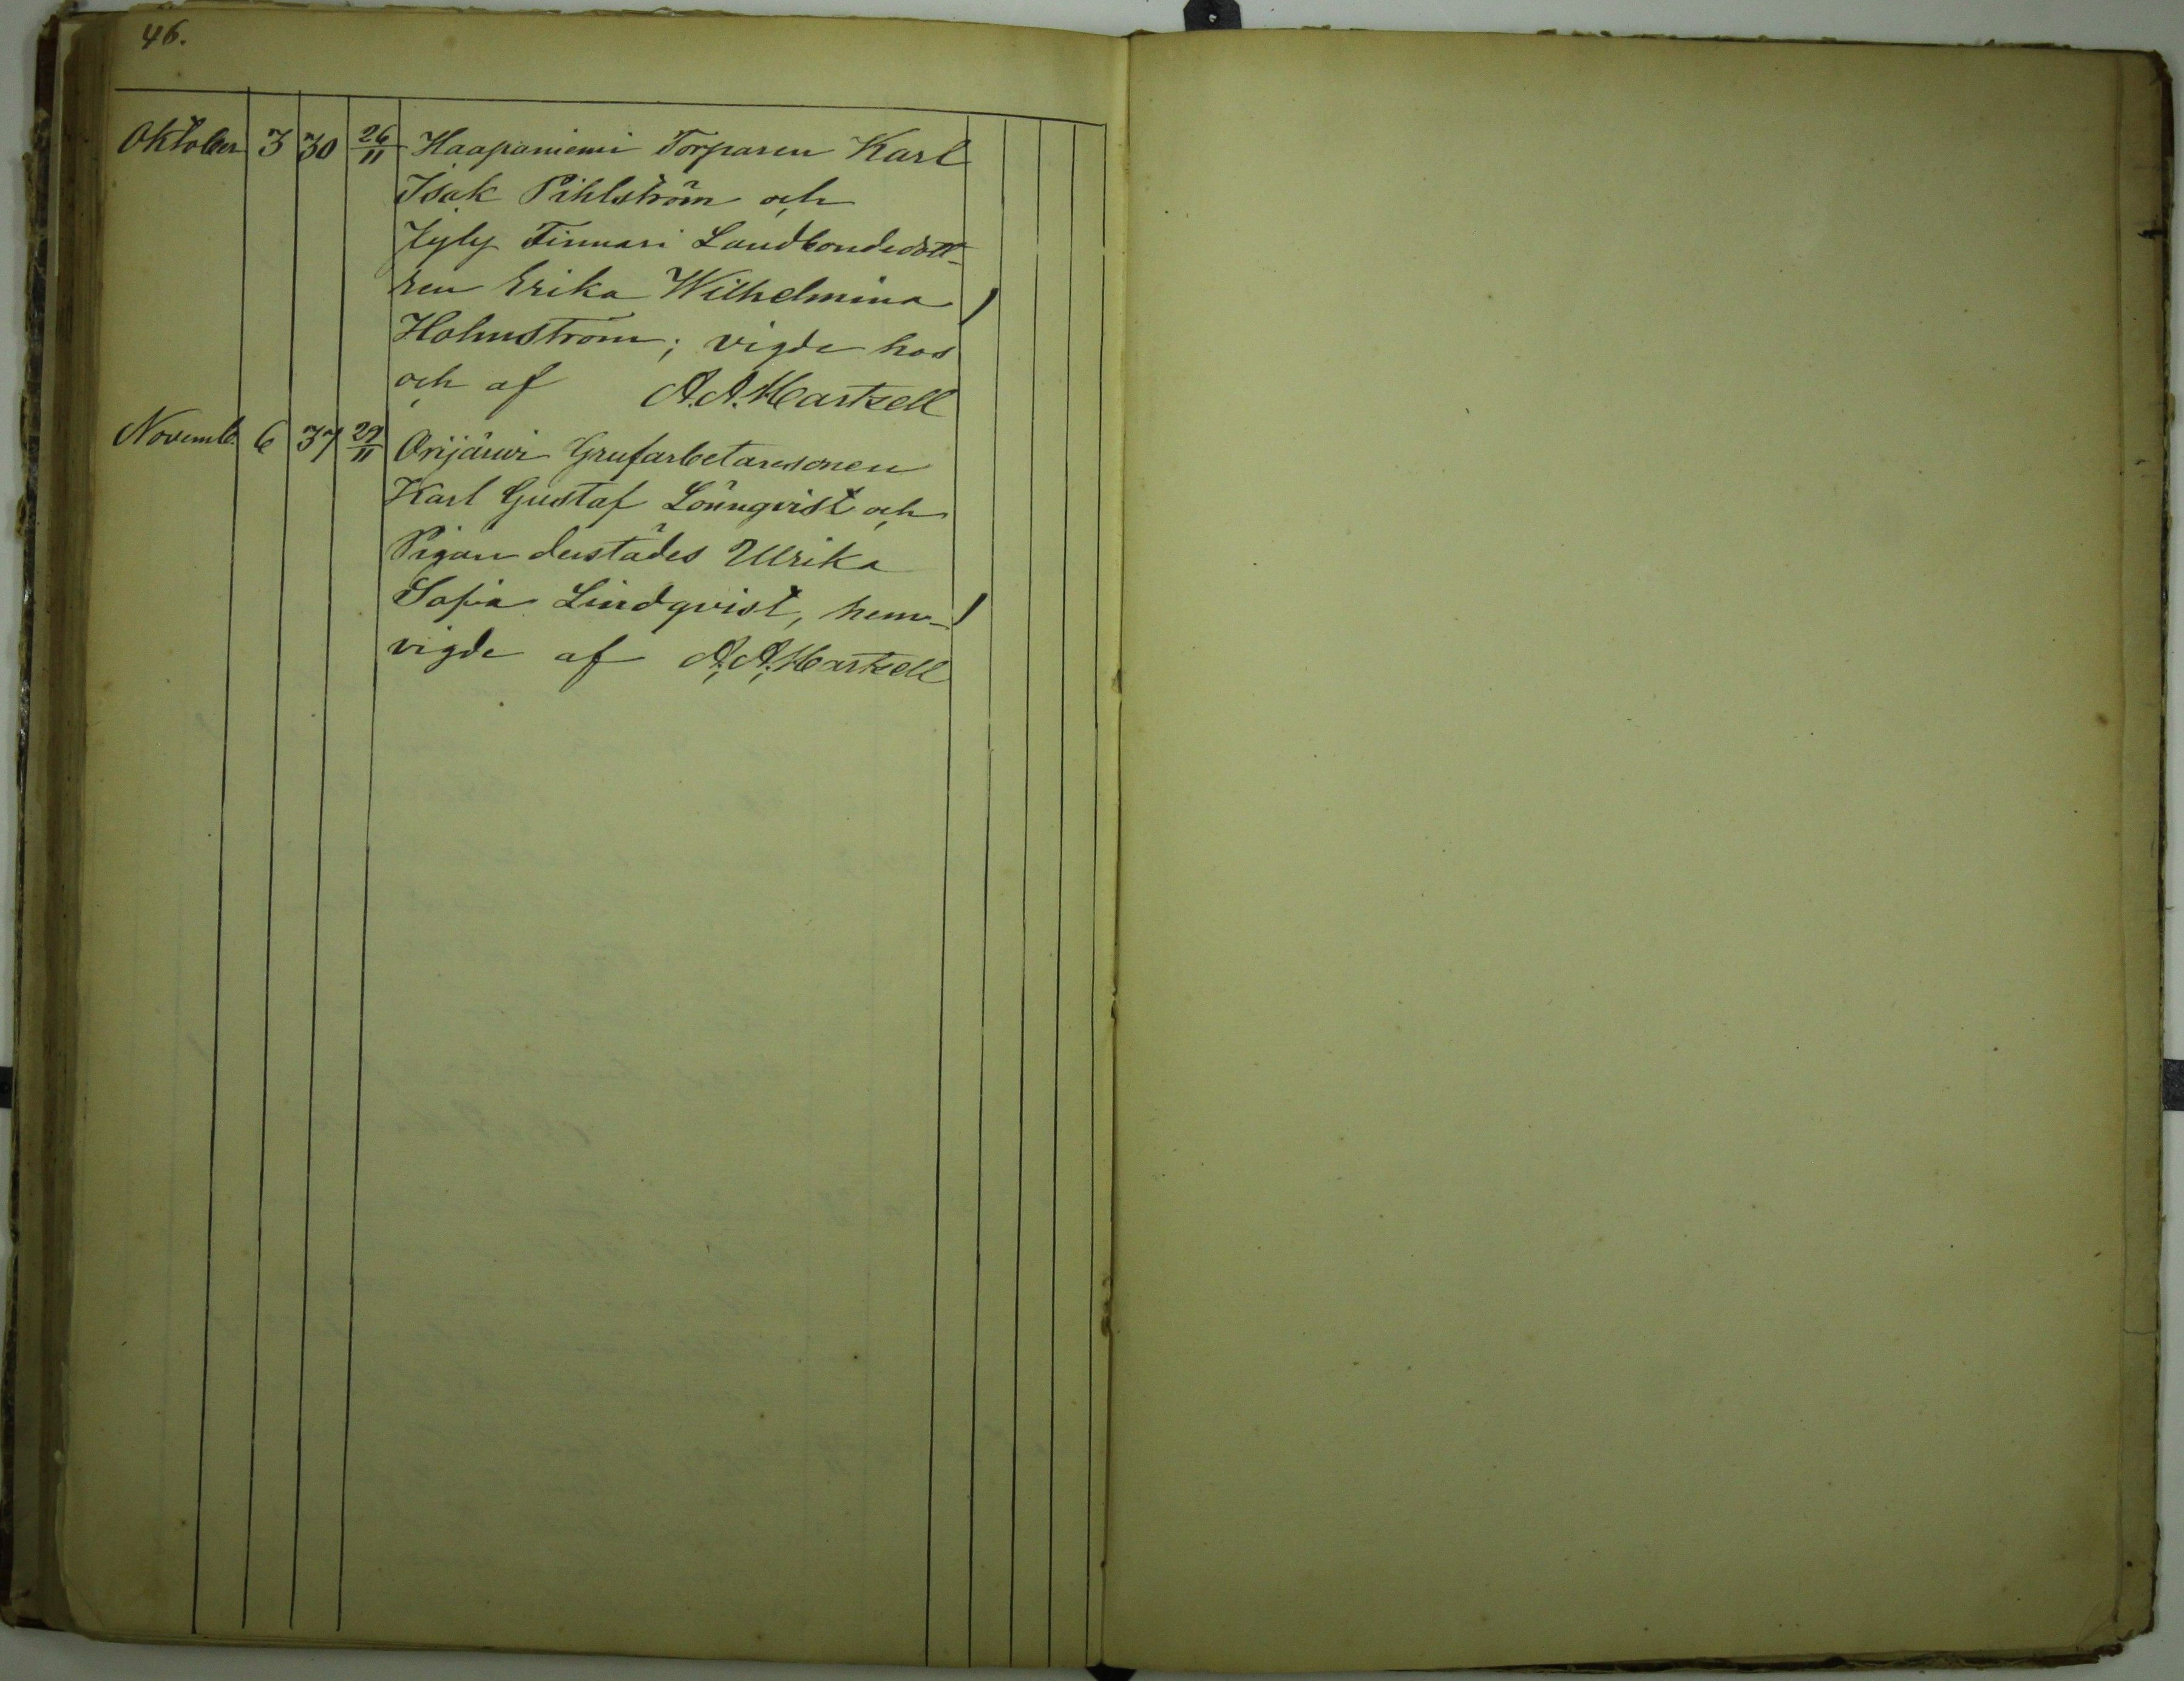 46.
Oktober 3 30 26/11 Haapaniemi Torparen Karl
Isak Pihlström och
Jyly Finnari Landbondedott-
ren Erika Wilhelmina 1
Holmström; vigde hos
och af A. A. Hartzell
Novemb. 6 37 29/11 Orijärvi Grufarbetaresonen
Karl Gustaf Lönnqvist och
Pigan derstädes Ulrika
Sofia Lindqvist, hem- 1
vigde af A. A. Hartzell